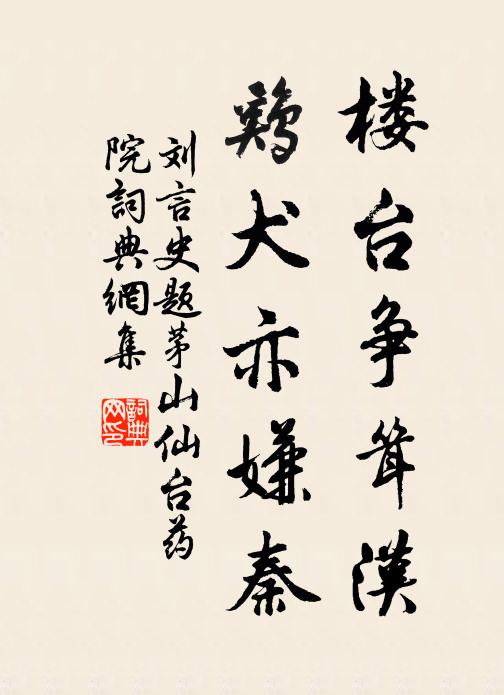 楼台争耸漢
鷄犬亦嫌秦
刘言史题茅山仙台药
院詞典網集
詞典网印